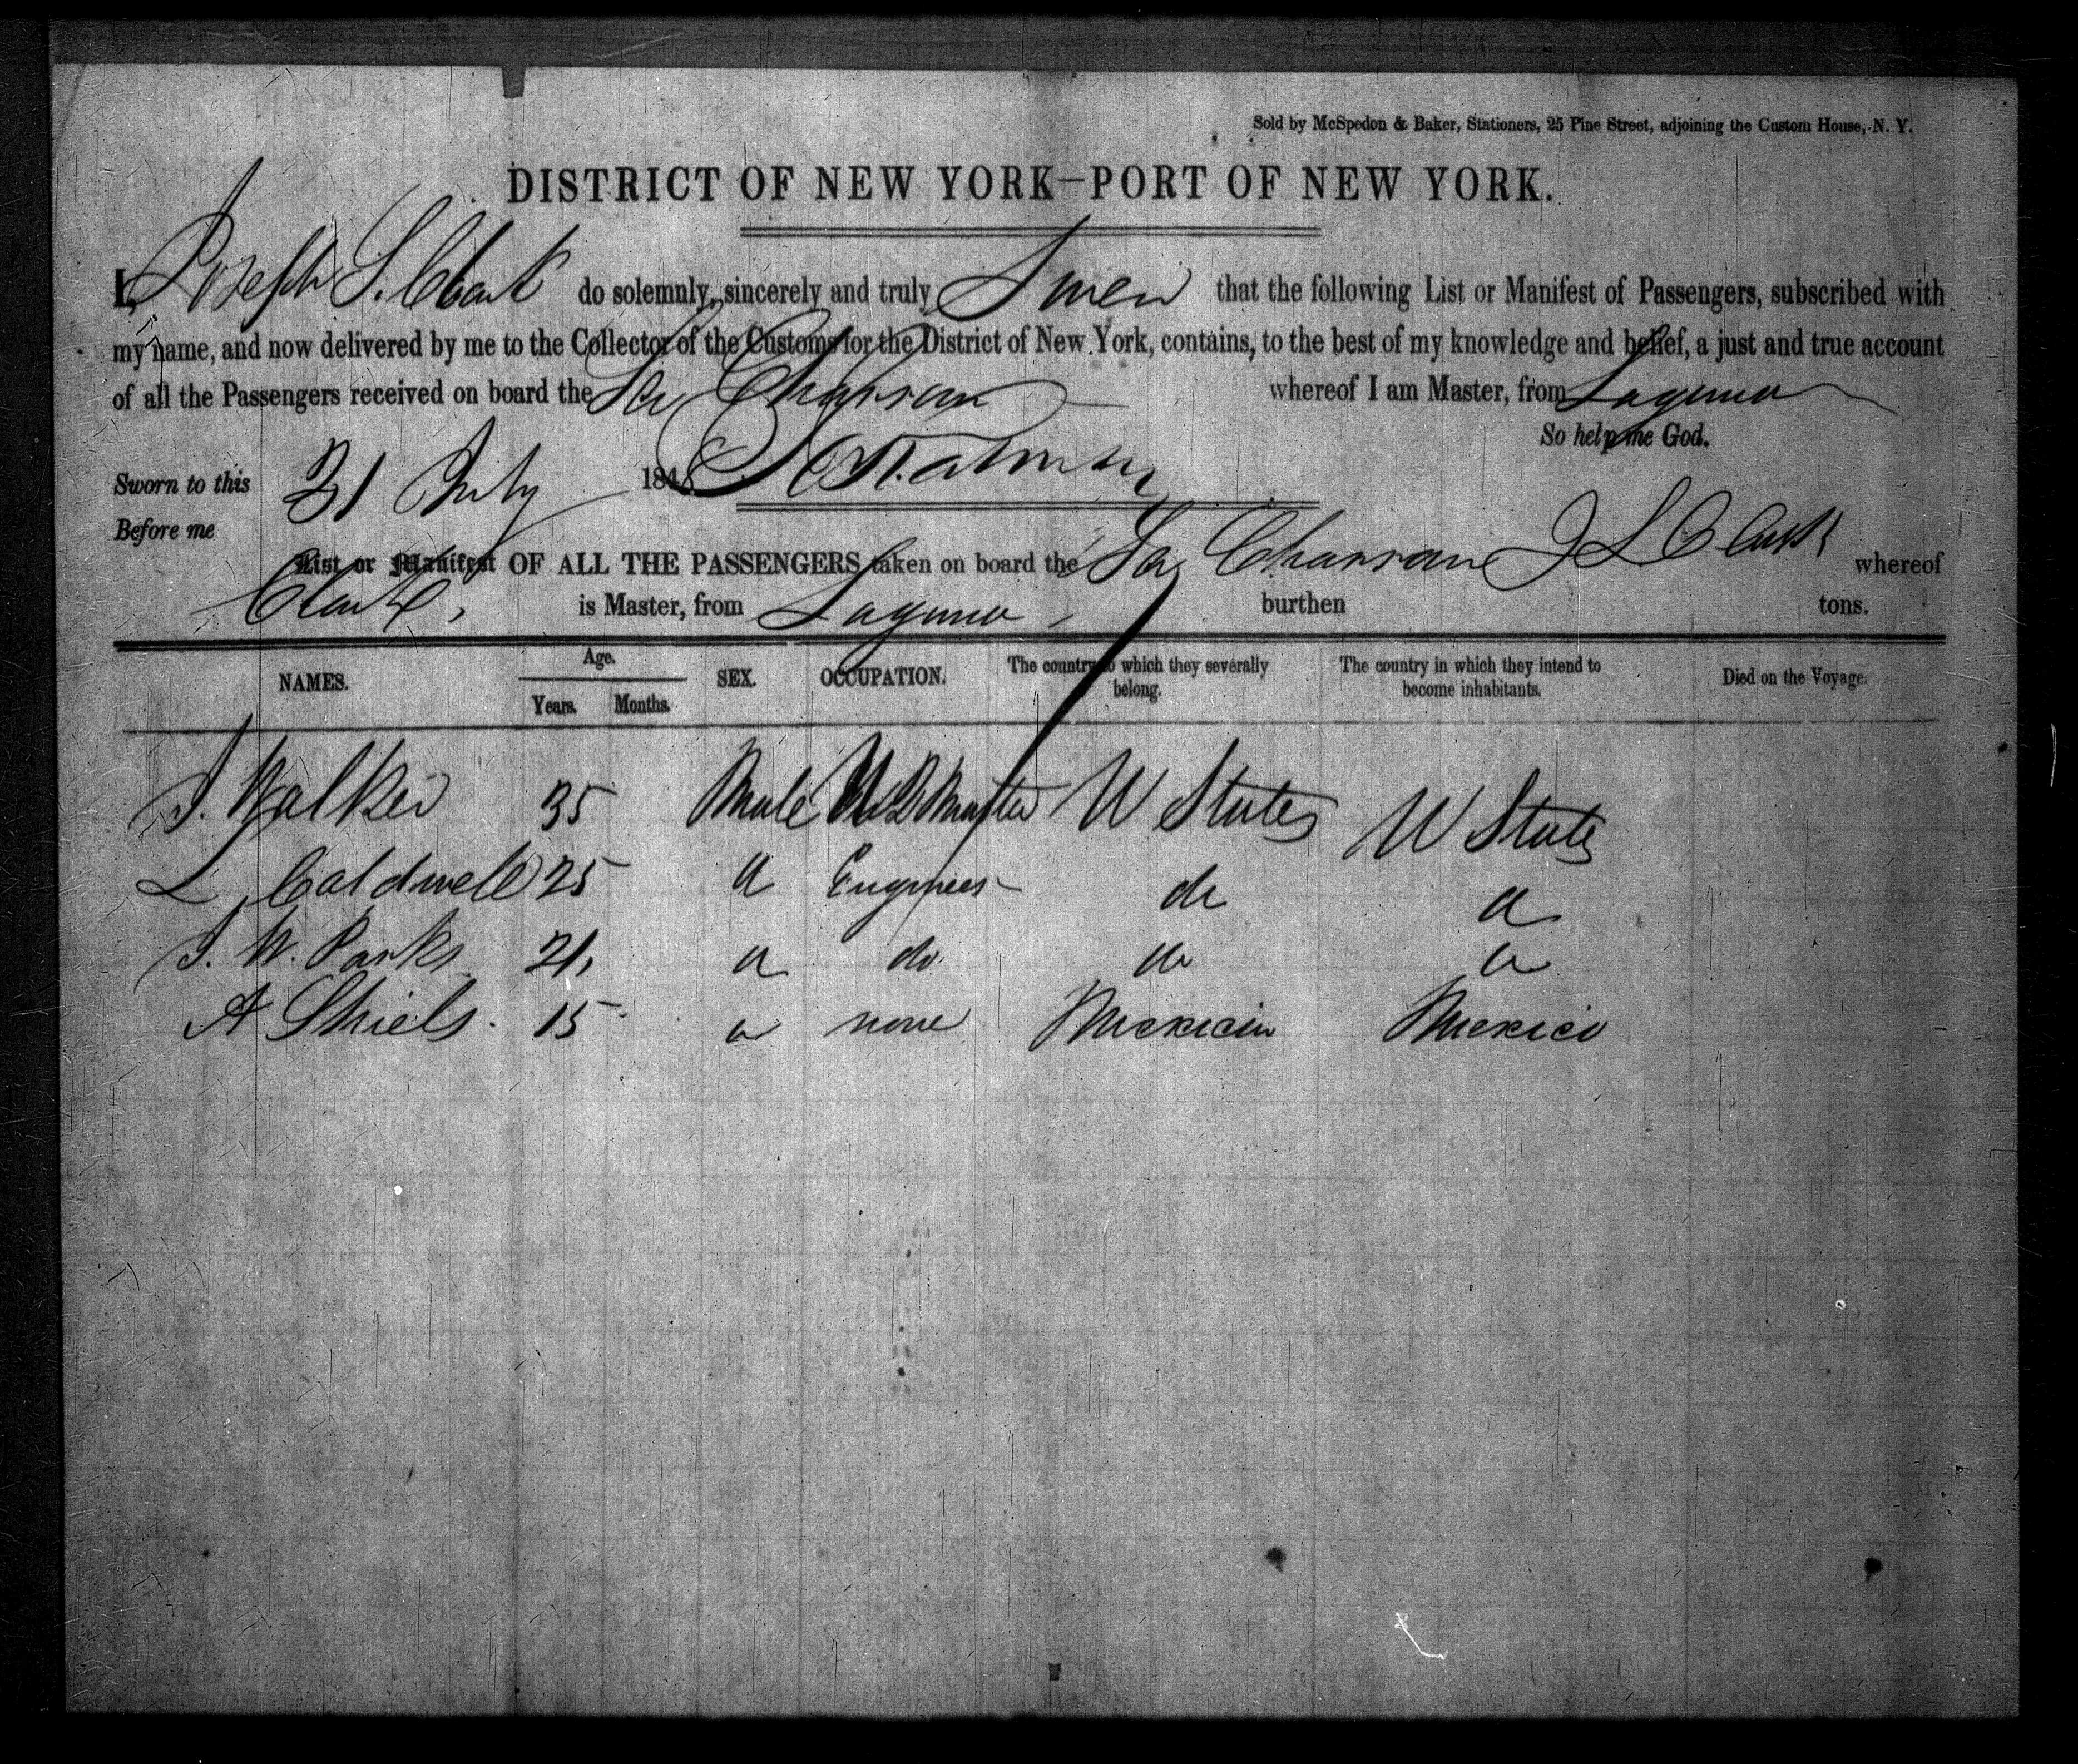 Sold by McSpedon & Baker, Stationers, 25 Pine Street, adjoining the Custom House, N. Y.
DISTRICT OF NEW YORK—PORT OF NEW YORK.
I, Joseph S. Clark do solemnly, sincerely and truly Swear that the following List or Manifest of Passengers, subscribed with
my name, and now delivered by me to the Collector of the Customs for the District of New York, contains, to the best of my knowledge and belief, a just and true account
of all the Passengers received on board the whereof I am Master, from Laguna
So help me God.
Sworn to this 31 July 184
Before me
List or Manifest OF ALL THE PASSENGERS taken on board the J S Clark whereof
Clark, is Master, from Laguna, burthen tons.
NAMES. Age. SEX. OCCUPATION. The country to which they severally belong. The country in which they intend to become inhabitants. Died on the Voyage.
Years. Months.
J. Walker 35 Male U States U States
L Caldwell 25 Engineer do
J. W. Parks 21, do do
A Shiels. 15 none Mexican Mexico